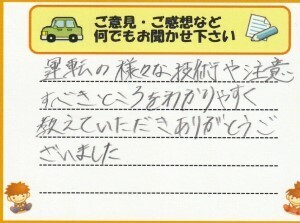 ご意見・ご感想など
何でもお聞かせ下さい
運転の様々な技術や注意
すべきところをわかりやすく
教えていただきありがとうご
ざいました